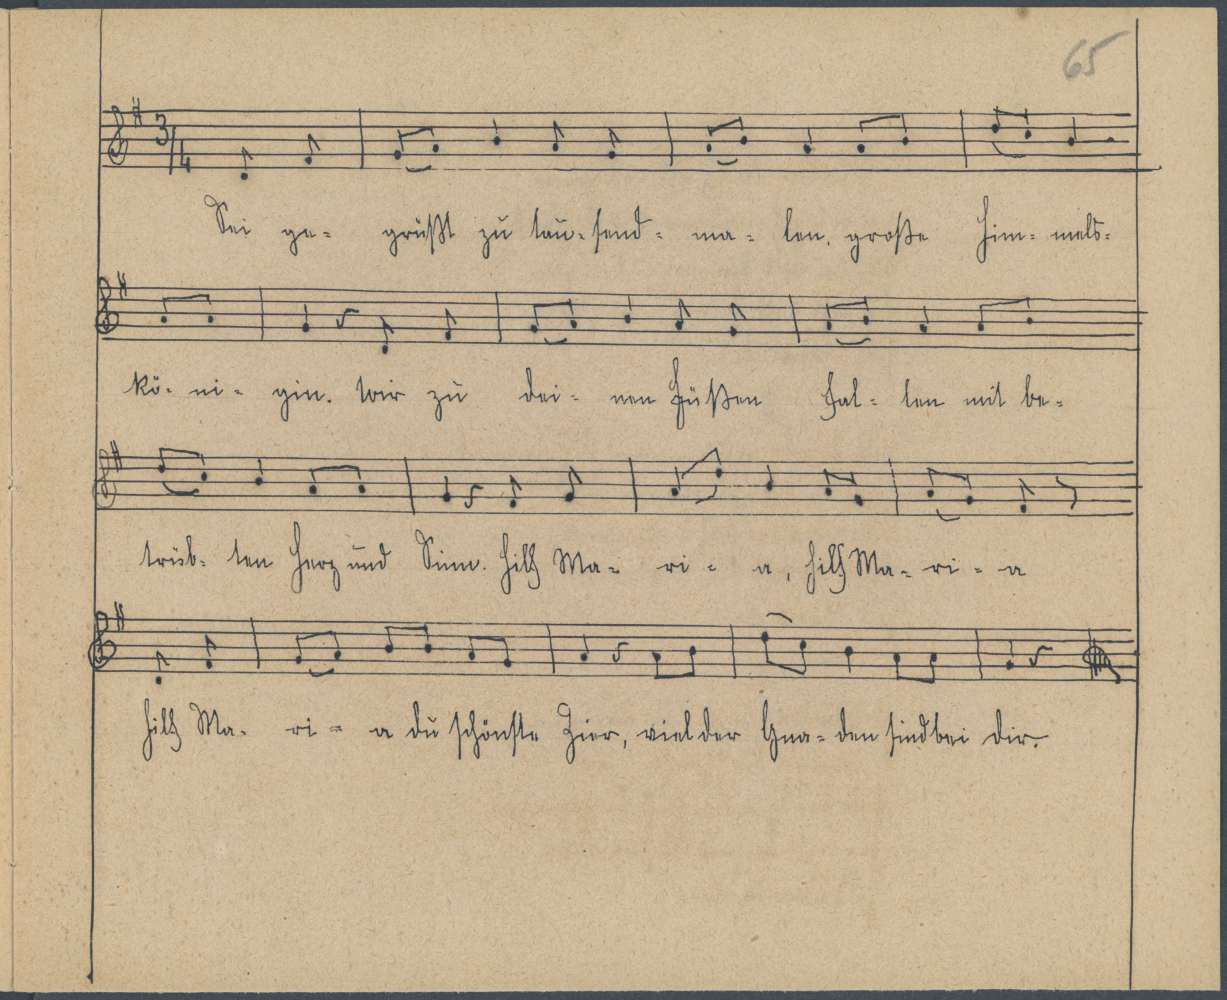 65
3/4
Sei ge- grüßt zu tau-send- ma- len, große Him- mels-
kö- ni- gin. Wir zu dei- nen Füßen fal- len mit be-
trüb- ten Herz und Sinn. Hilf Ma- ri- a, hilf Ma- ri- a
hilf Ma- ri- a du schönste Zier, viel der Gna- den sind bei dir.